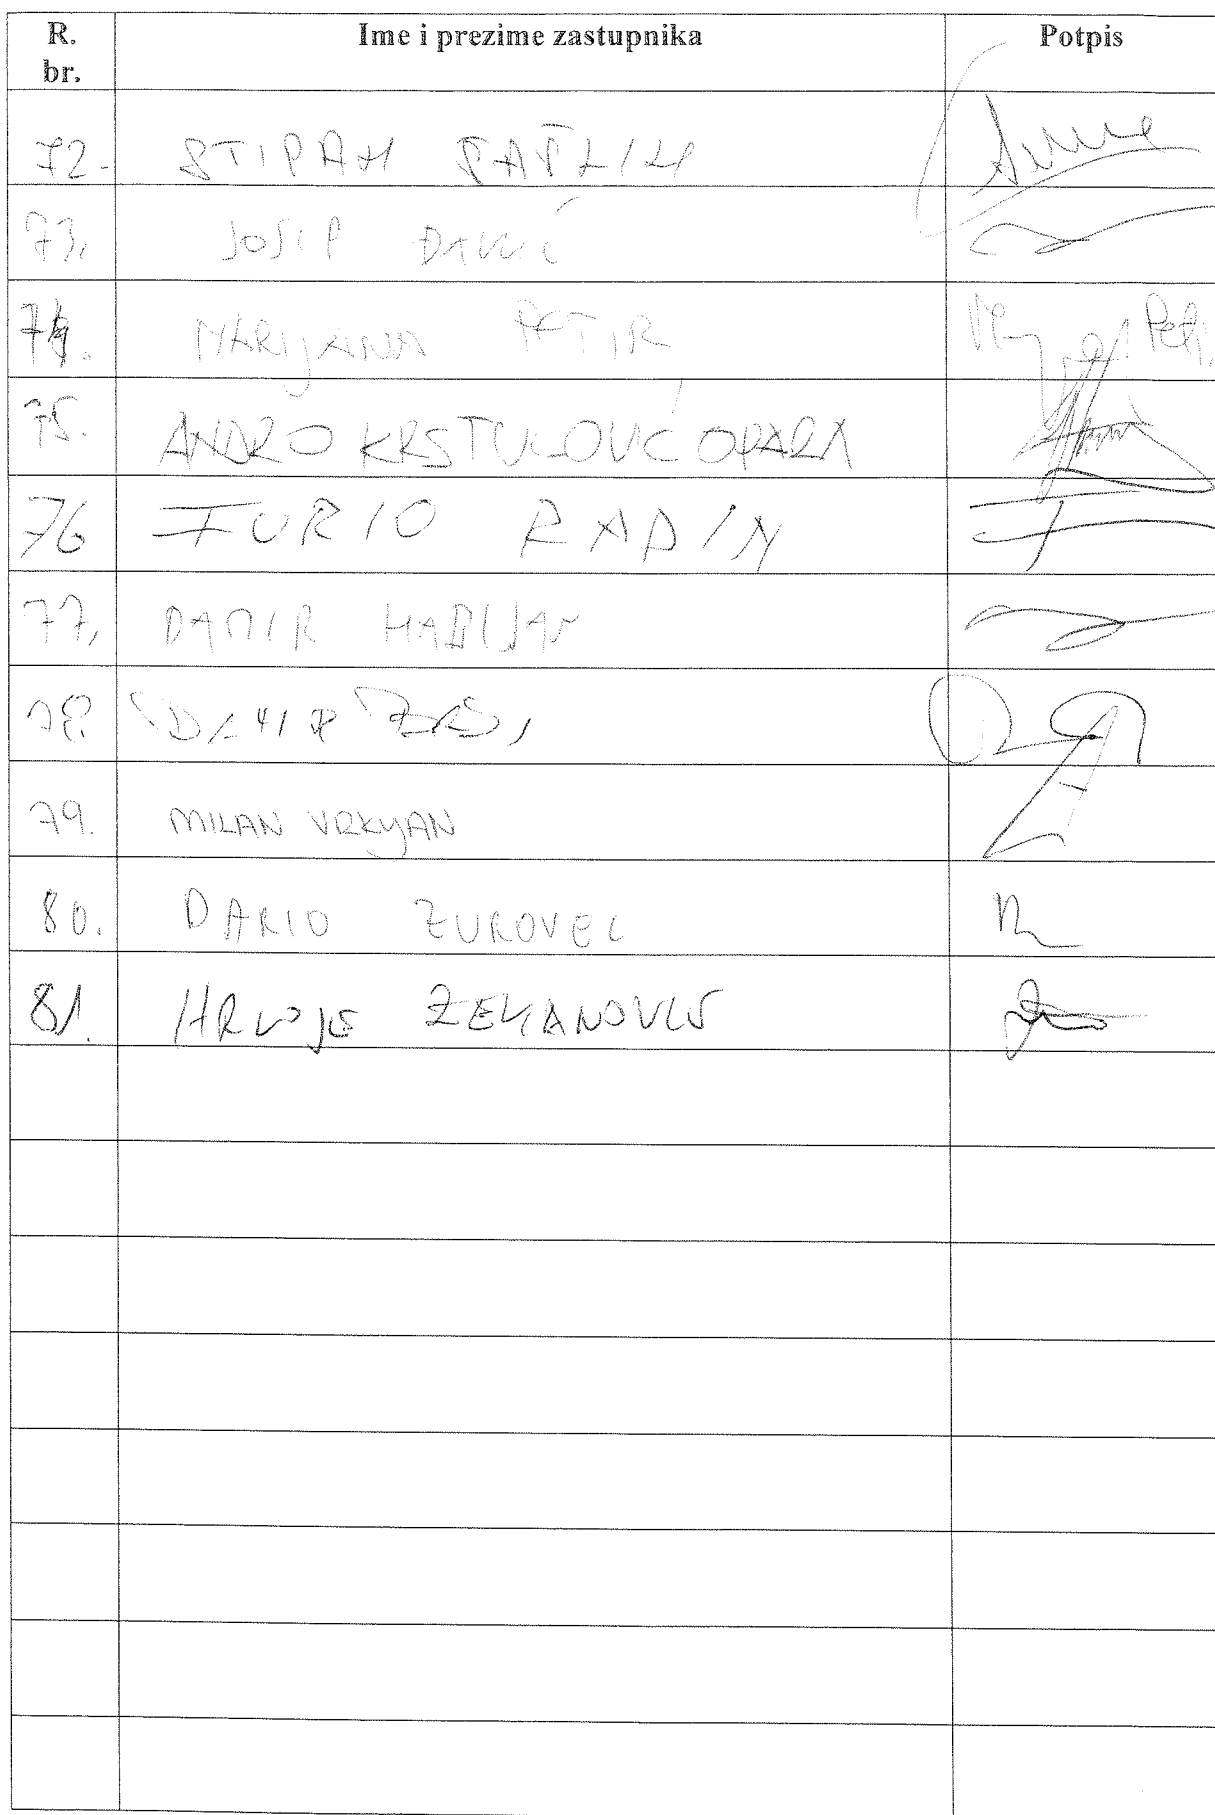 R. br. Ime i prezime zastupnika Potpis
72. STIPAN ŠAŠLIN
73. JOSIP ĐAKIĆ
74. MARIJANA PETIR
75. ANDRO KRSTULOVIĆ OPARA
76 FURIO RADIN
77. DAMIR HABIJAN
78.
79. MILAN VRKLJAN
80. DARIO ZUROVEC
81. HRVOJE ZEKANOVIĆ